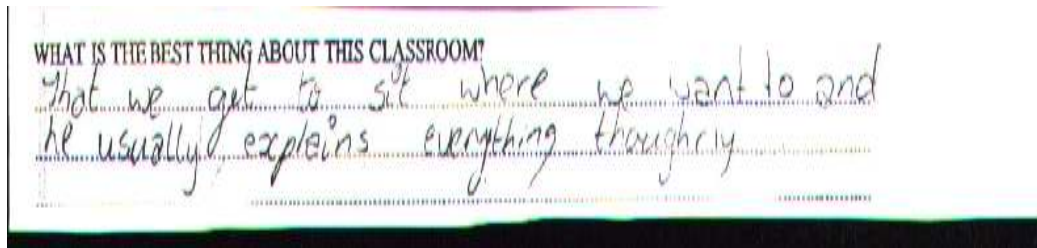 WHAT IS THE BEST THING ABOUT THIS CLASSROOM?
That we get to sit where we want to and
he usually expleins everything thoughrly